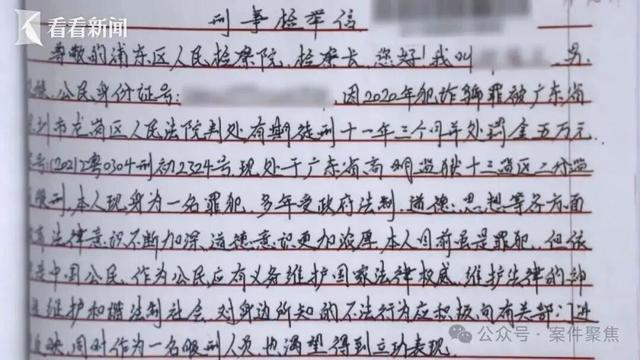 看看新闻
刑事检举信
尊敬的浦东区人民检察院,检察长,您好!我叫 男,
族,公民身份证号: ,因2020年犯诈骗罪被广东省
圳市龙岗区人民法院判处有期徒刑十一年三个月并处罚金五万元
号:(2021)粤0304刑初2324号,现处于广东省高明监狱十三监区二分监
服刑,本人现身为一名罪犯,多年受政府法制、道德、思想等各方面
法律意识不断加深,道德意识更加浓厚,本人目前虽是罪犯,但依
是中国公民,作为公民应有义务维护国家法律权威,维护法律的
维护和谐法制社会,对身边所知的不法行为应积极向有关部门进
反映,同时作为一名服刑人员,也渴望得到立功表现
公众号·案件聚焦